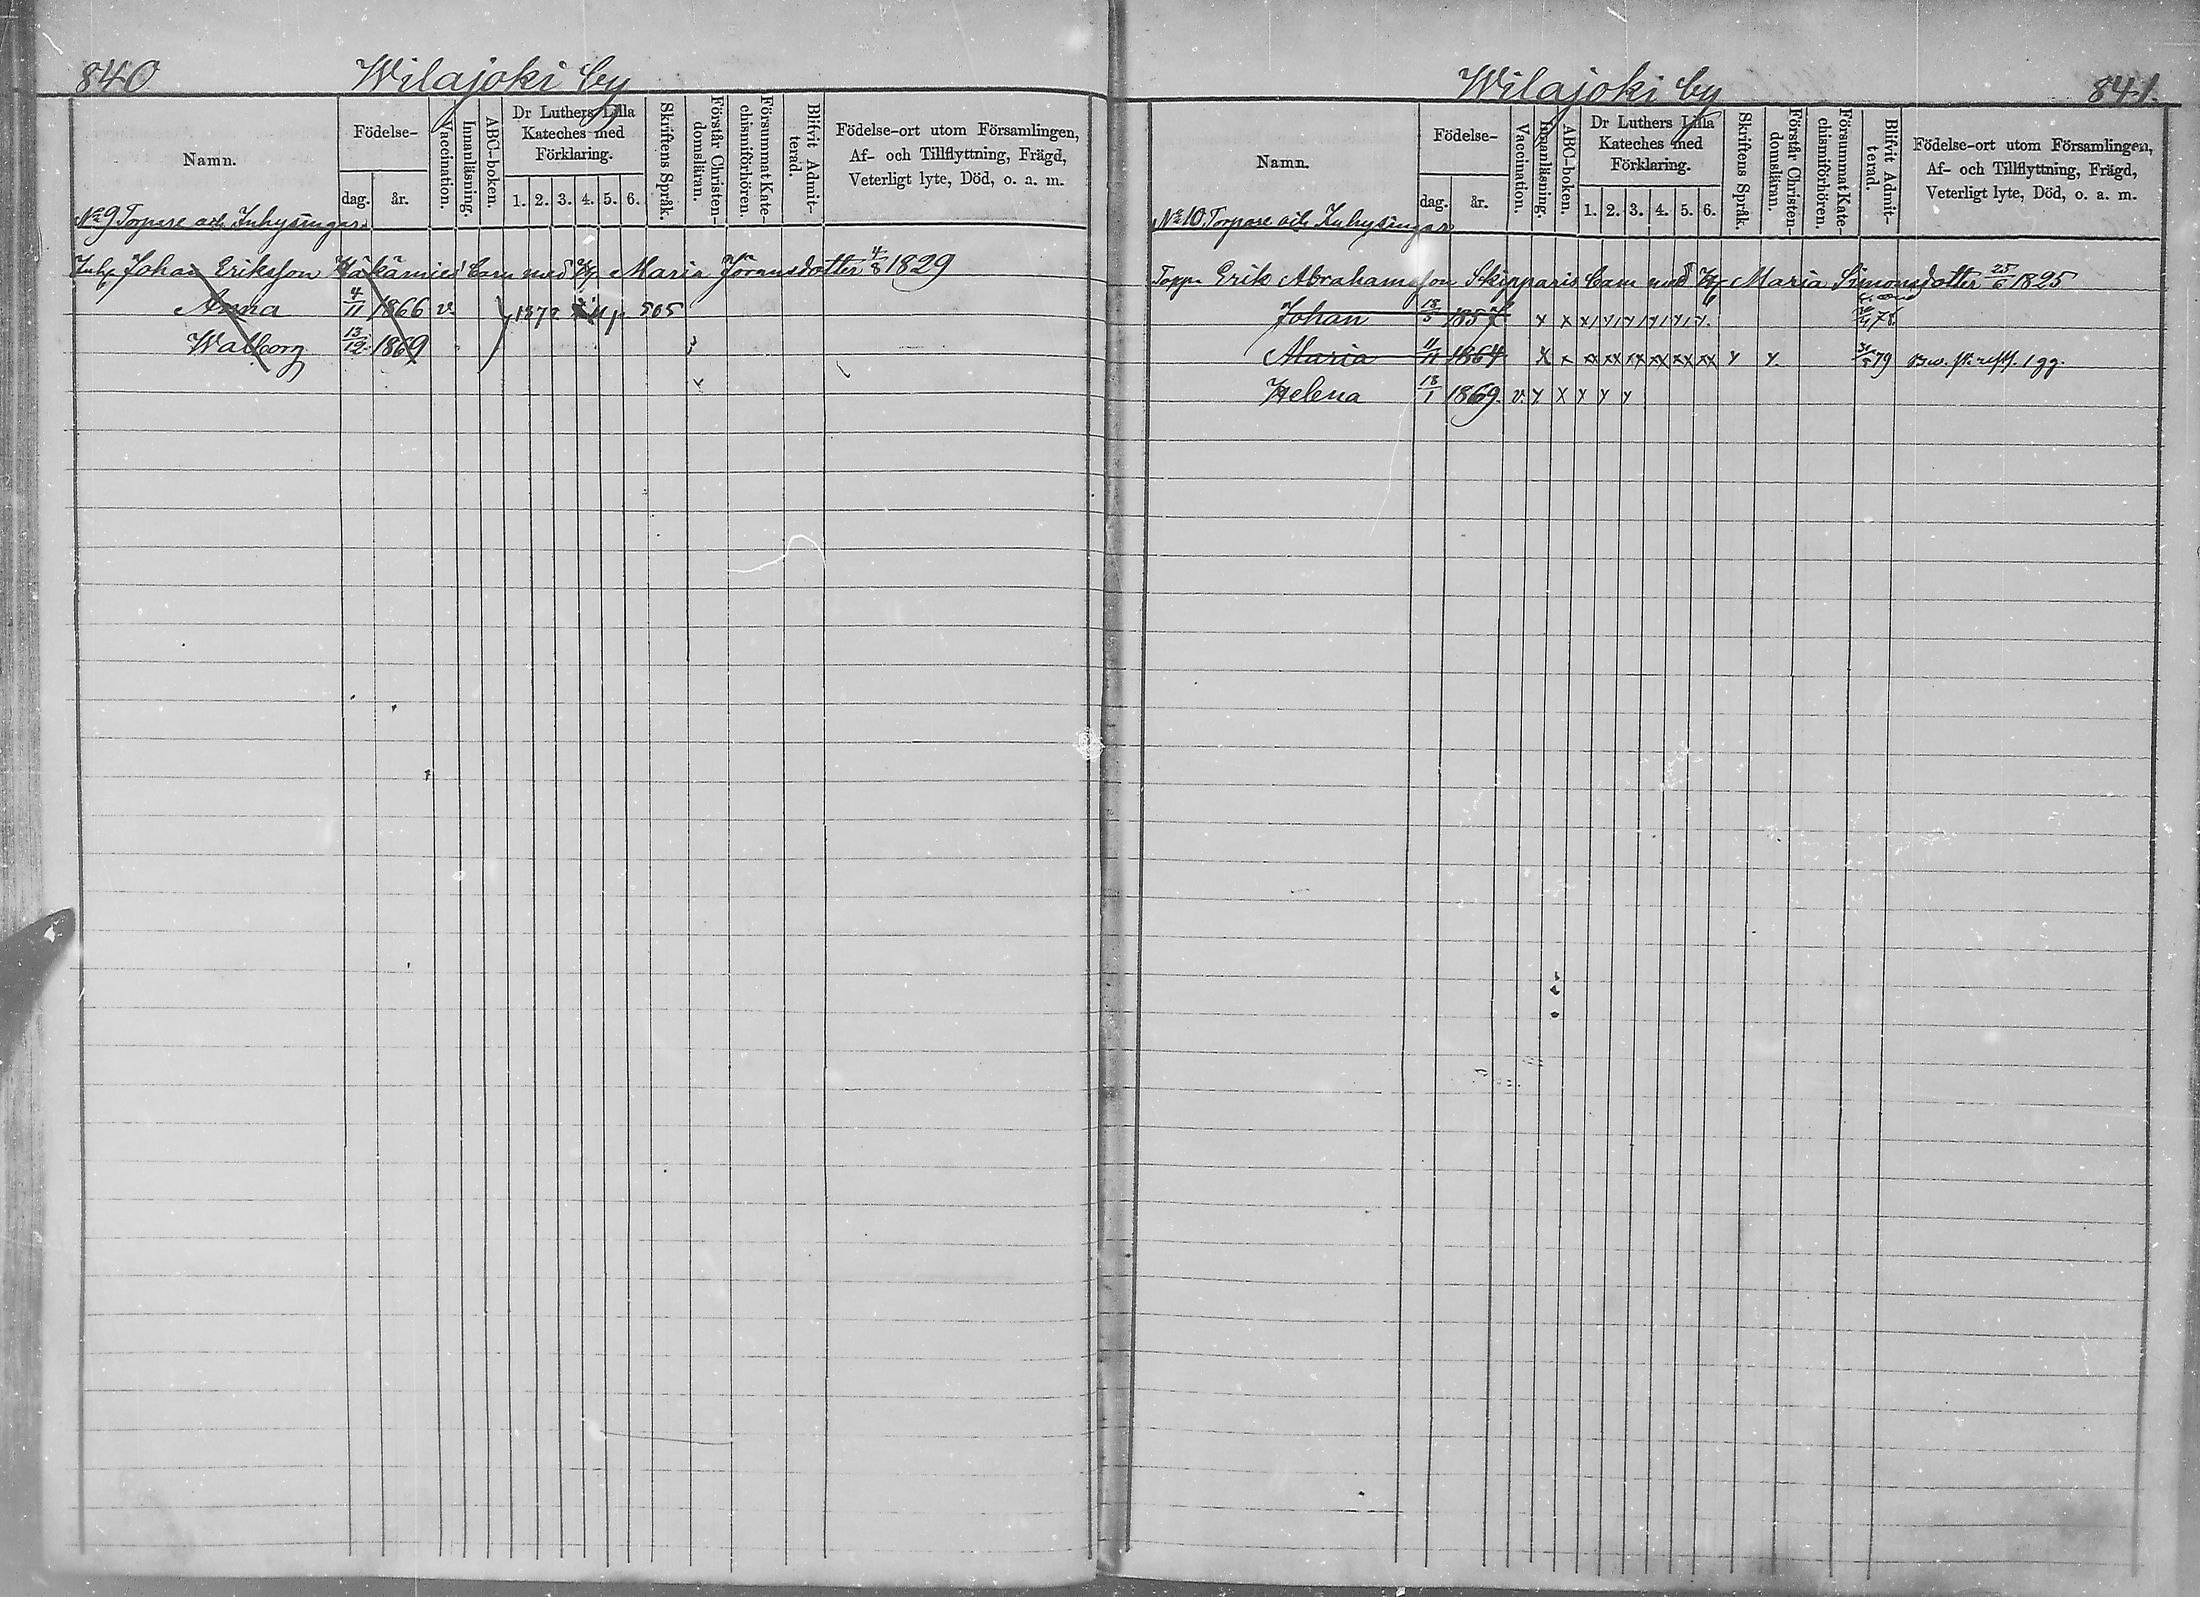 840 Wilajoki by
Namn. Födelse- dag. år. Vaccination. Innanläsning. ABC-boken. Dr Luthers Lilla Kateches med Förklaring. 1. 2. 3. 4. 5. 6. Skriftens Språk. Förstår Christen-domsläran. Försummat Kate-chismiförhören. Blifvit Admit-terad. Födelse-ort utom Församlingen, Af- och Tillflyttning, Frägd, Veterligt lyte, Död, o. a. m.
No 9 Torpare och Inhysingar
Inh. Johan Eriksson barn med Maria Jöransdotter 4/8 1829
Anna 4/11 1866 v. 1872 p 505
Walborg 13/12 1869
Wilajoki by 841.
Namn. Födelse- dag. år. Vaccination. Innanläsning. ABC-boken. Dr Luthers Lilla Kateches med Förklaring. 1. 2. 3. 4. 5. 6. Skriftens Språk. Förstår Christen-domsläran. Försummat Kate-chismiförhören. Blifvit Admit-terad. Födelse-ort utom Församlingen, Af- och Tillflyttning, Frägd, Veterligt lyte, Död, o. a. m.
No 10. Torpare och Inhysingar
Torp. Erik Abrahamsson Skipparis barn med Maria Simonsdotter 25/6 1825
Johan 18/5 1857 x x x 78.
Maria 11/11 1864 x x xx xx xx xx xx xx x x. 79 1 gg.
Helena 18/1 1869. v. x x x x x